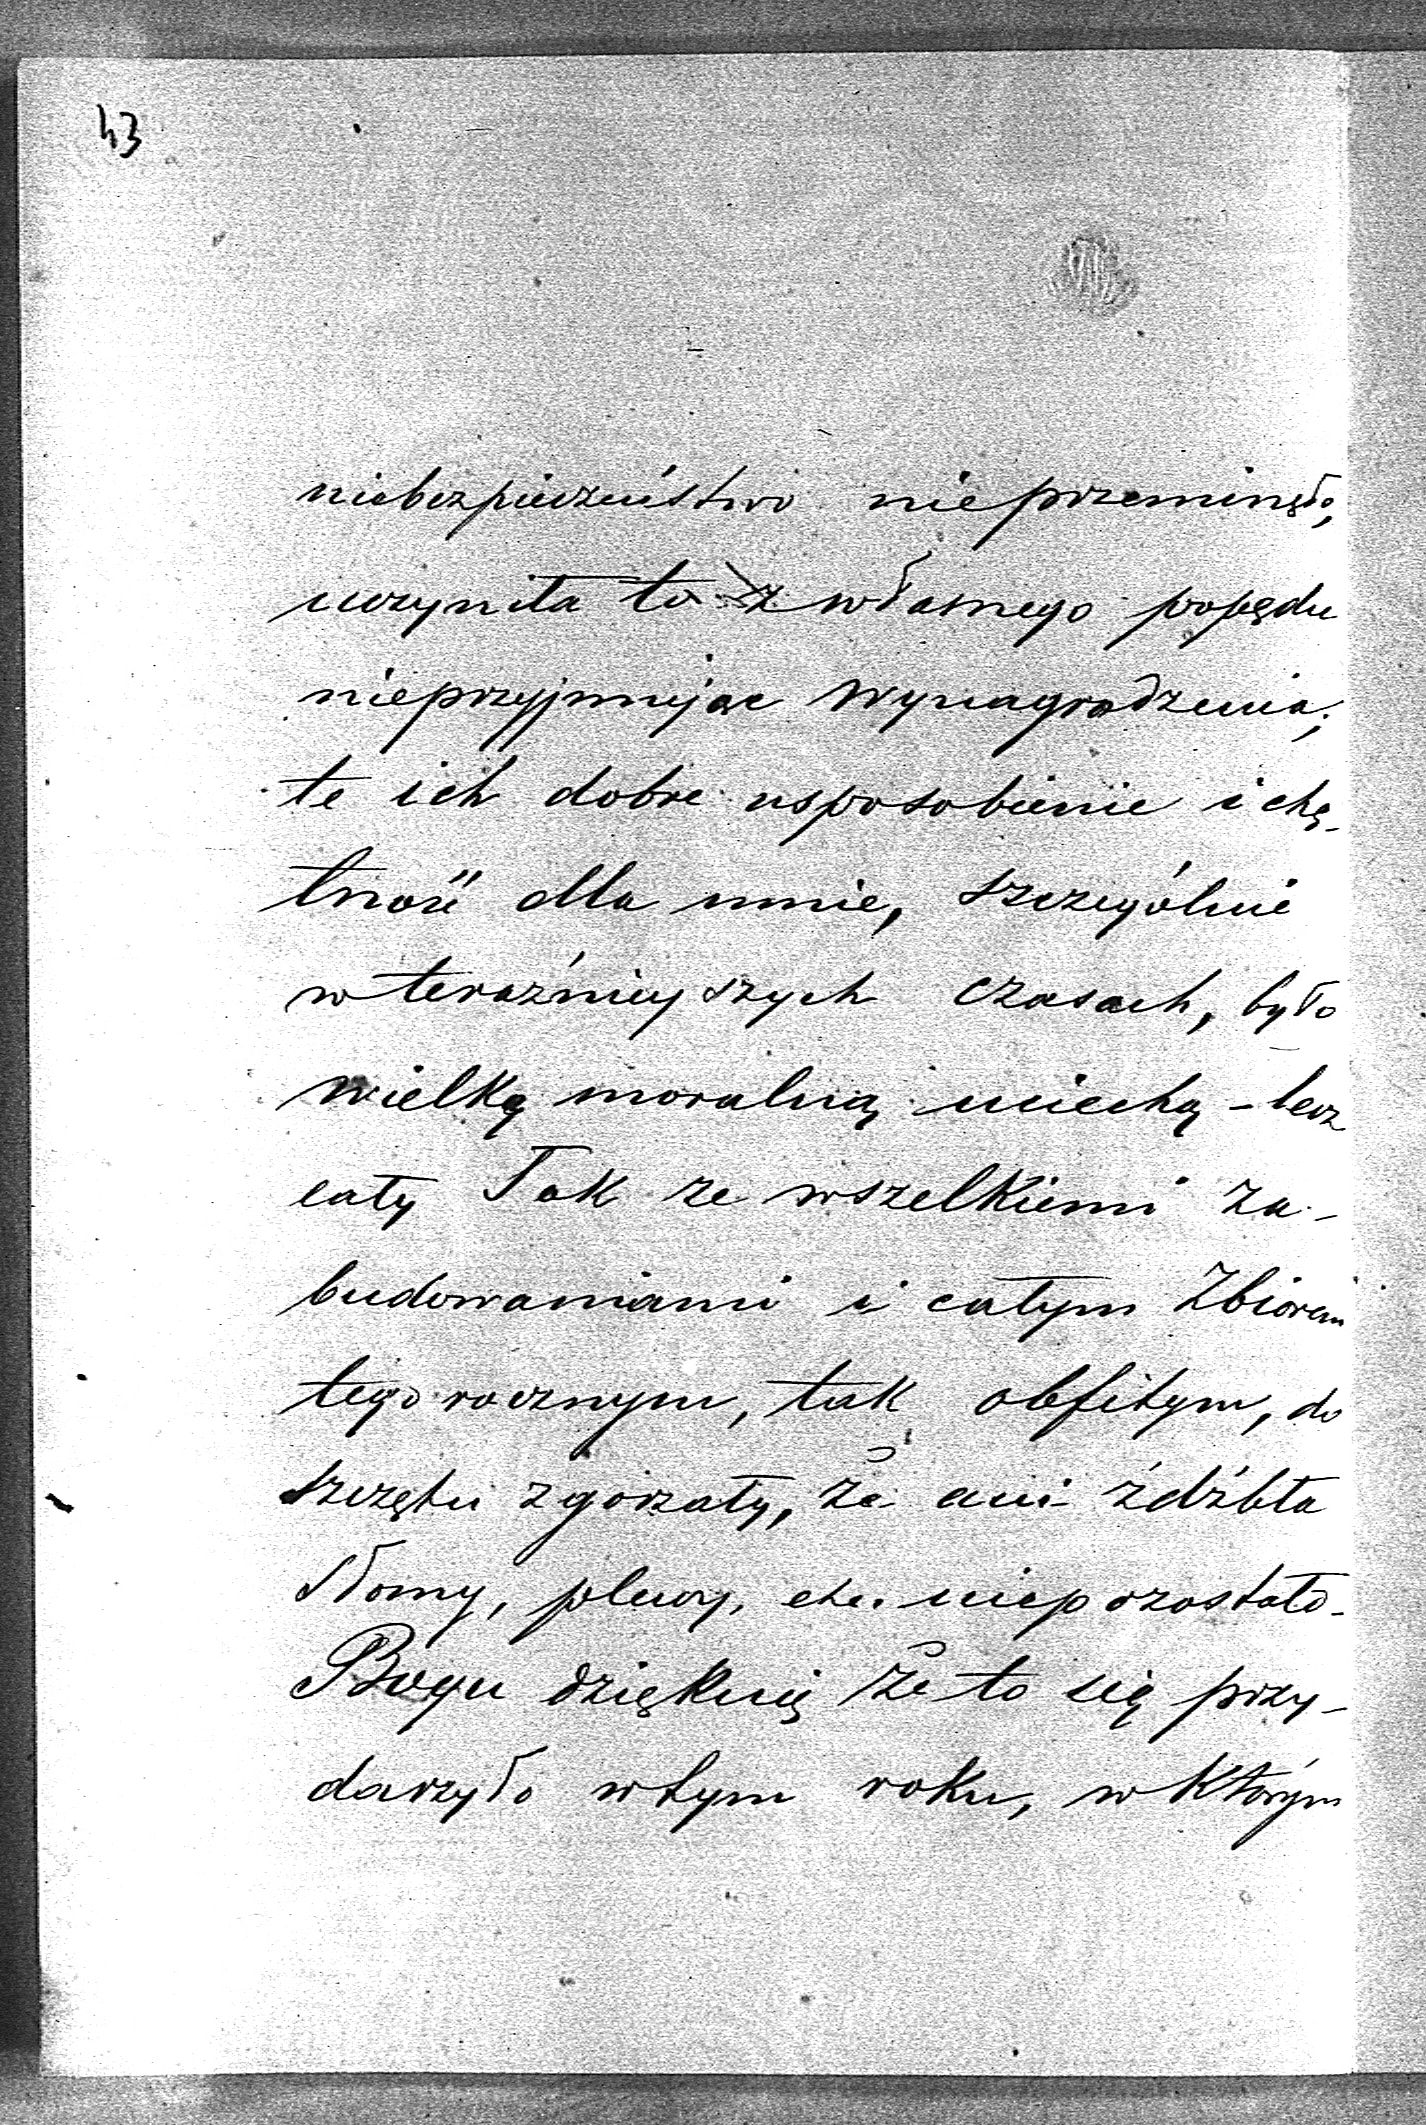 43
niebezpieczeństwo nieprzeminęło,
uczyniła to z własnego popędu
nieprzyjmując wynagrodzenia;
te ich dobre usposobienie i chę-
tność dla mnie, szczególnie
w teraźniejszych czasach, było
wielką moralną uciechą - lecz
cały Tok ze wszelkiemi za-
budowaniami i całym Zbiorem
tegorocznym, tak obfitym, do
szczętu zgorzały, że ani źdźbła
słomy, plewy, etc. niepozostało -
Bogu dziękuię że to się przy-
darzyło w tym roku, w którym